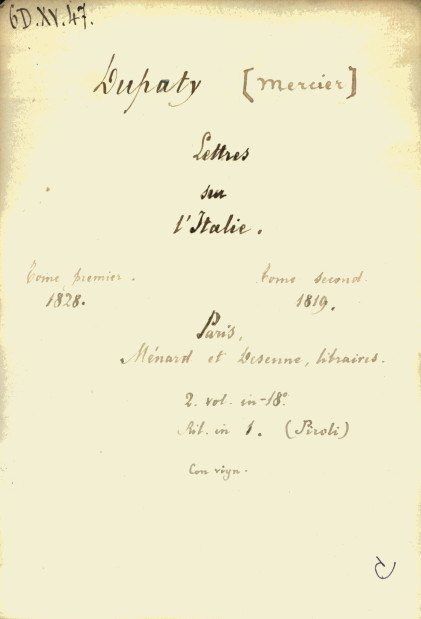 6D.XV.47.
Dupaty [Mercier]
Lettres
sur
l'Italie.
Tome premier. tome second.
1828. 1819.
Paris,
Ménard et Desenne, libraires.
2. vol. in-18°
Rit. in 1. (Piroli)
Con vign.